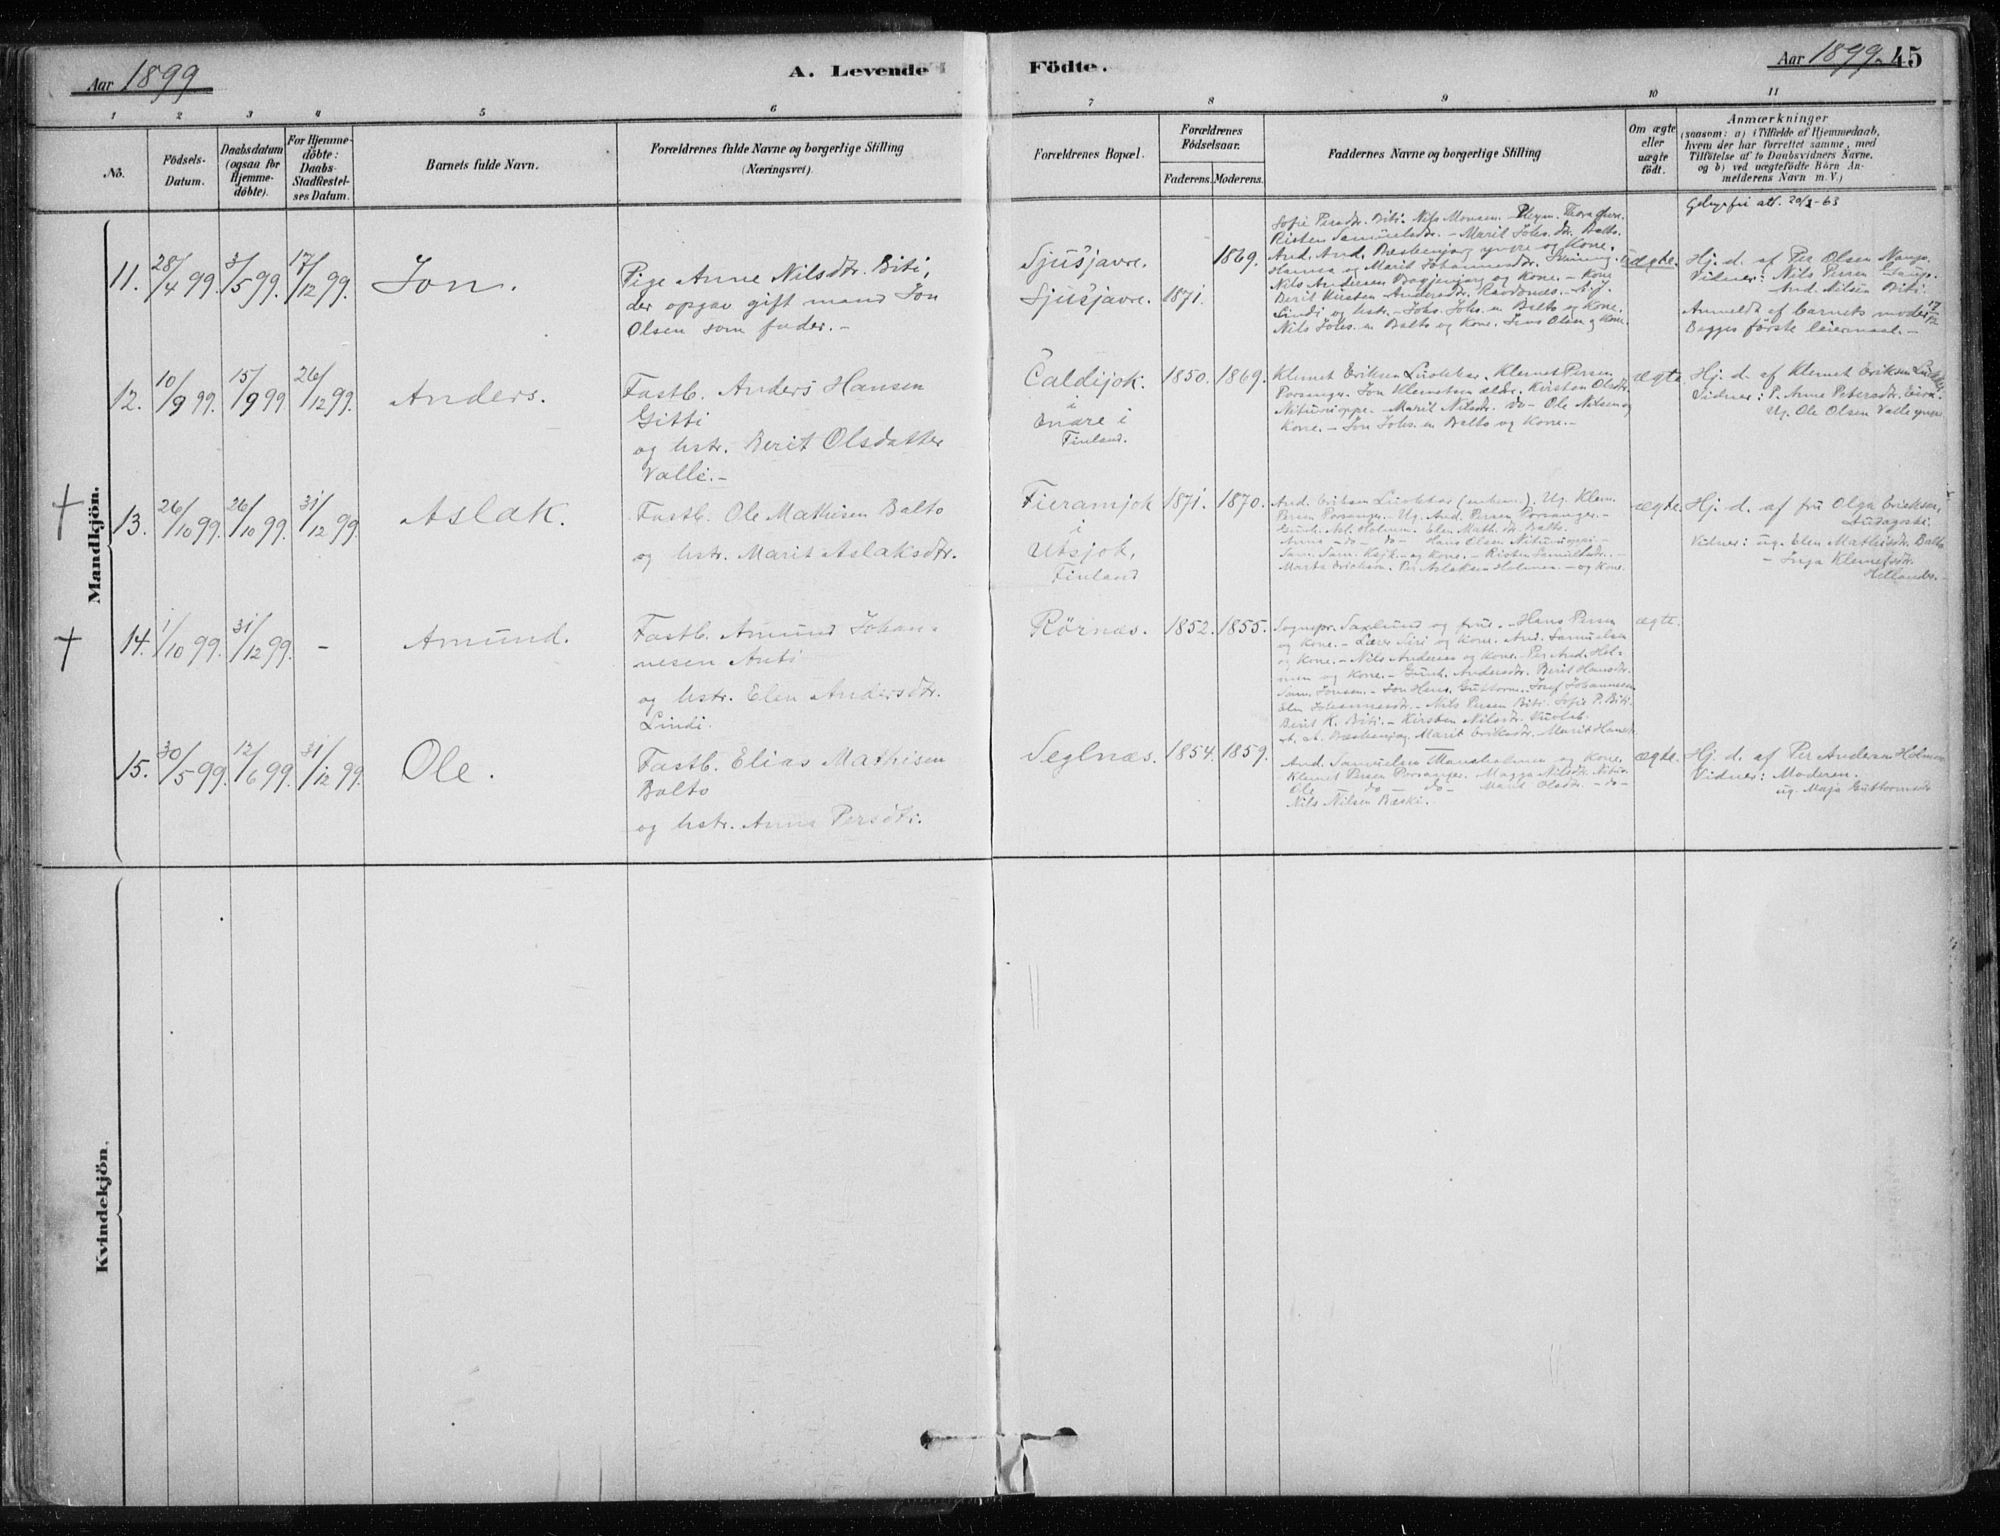 Aar 1899
A. Levende
1 2 3 4 5 6
No.
Födsels-
Datum.
Daabsdatum
(ogsaa for
Hjemme-
döbte).
For Hjemme-
döbte:
Daabs-
Stadfæstel-
ses Datum.
Barnets fulde Navn.
Forældrenes fulde Navne og borgerlige Stilling
(Næringsvei).
Mandkjön.
11. 28/4 99. 3/5 99. 17/12 99. Jon.
Pige Anne Nilsdtr. Biti,
der opgav gift mand Jon
Olsen som fader. -
12. 10/9 99. 15/9 99 26/12 99. Anders.
Fastb. Anders Hansen
Gitti
og hstr. Berit Olsdatter
Valle. -
13. 26/10 99. 26/10 99. 31/12 99. Aslak.
Fastb. Ole Mathisen Balto
og hstr. Marit Aslaksdtr.
14. 1/10 99. 31/12 99. - Amund.
Fastb. Amund Johan-
nesen Anti
og hstr. Elen Andersdtr.
Lindi.
15. 30/5 99. 12/6 99. 31/12 99. Ole.
Fastb. Elias Mathisen
Balto
og hstr. Anna Persdtr.
Kvindekjön.
Födte.
Aar 1899. 45
7 8 9 10 11
Forældrenes Bopæl.
Forældrenes
Födselsaar.
Faderens. Moderens.
Faddernes Navne og borgerlige Stilling
Om ægte
eller
uægte
födt.
Anmærkninger
(saasom: a) i Tilfælde af Hjemmedaab,
hvem der har forrettet samme, med
Tilföielse af to Daabsvidners Navne,
og b) ved uægtefödte Börn An-
melderens Navn m. V.)
Sjusjavre.
Sjusjavre.
1871.
1869.
Sofie Persdtr. Biti. Nils Monsen
Risten Samuelsdtr. - Marit Johs. dtr. Balto.
And. And. Bæskenjarg yngre og Kone.
Hansa og Marit Johannesdtr.
Nils Andersen og Kone. - Kone
Berit Kirsten Andersdtr.
Lindi og hstr. - Johs. Johs. en Balto og Kone.
Nils Johs. en Balto og Kone. Jens Olsen og Kone.
uægte.
Hj. d. af Per Olsen
Vidner: Nils Persen Gaup.
And. Nilsen Biti.
Anmeldt af barnets moder 17/12
Begges förste leiermaal. -
Caldijok.
i
Enare i
Finland.
1850. 1869.
Klemet Eriksen Luobbar. Klemet Persen
Porsanger. Jon Klemetsen eldr. Kirsten Olsdtr.
- Marit Nilsdtr. do - Ole Nilsen og
Kone. - Jon Johs. en Balto og Kone. -
ægte
Hj. d. af Klemet Eriksen
Vidner: P. Anne Petersdtr.
Ug. Ole Olsen Valle yngre
Fieramjok
i
Utsjok,
Finland
1871. 1870.
And. Eriksen Luobbar Ug. Klem.
Persen Porsanger. Ug. And. Persen Porsanger. -
Holmen. Elen Math. dtr. Balto.
Anna - do - do - Hans Olsen
Sam. Sam. og Kone. - Risten Samuelsdtr. -
Marta Erickson. Per Aslaksen Holmen. - og Kone.
ægte.
Hj. d. af fru Olga Erickson,
Vidner: ug. Elen Mathisdtr. Balto
- Inga Klemetsdtr.
Rörnæs.
1852. 1855.
Sognepr. Saxlund og frue. - Hans Persen
og Kone. - Lærer Siri og Kone. And. Samuelsen
og Kone. - Nils Andersen og Kone. - Per And. Hol-
men og Kone. - Andersdtr. Berit Hansdtr.
Sam. Jonsen. - Jon Hans. Guttorm. - Josef Johannesen
Elen Johannesdtr. - Nils Persen Biti. Sofie P. Biti.
Berit K. Biti. - Kirsten Nilsdtr.
Marit Eriksdtr.
ægte.
Seglnæs.
1854. 1859.
And. Samuelsen og Kone.
Klemet Persen Porsanger. Magga Nilsdtr.
Ole do do Marit Olsdtr. - do -
Nils Nilsen Bæski.
ægte.
Hj. d. af Per Andersen Holmen
Vidner: Moderen.
ug. Maja Guttormsdtr